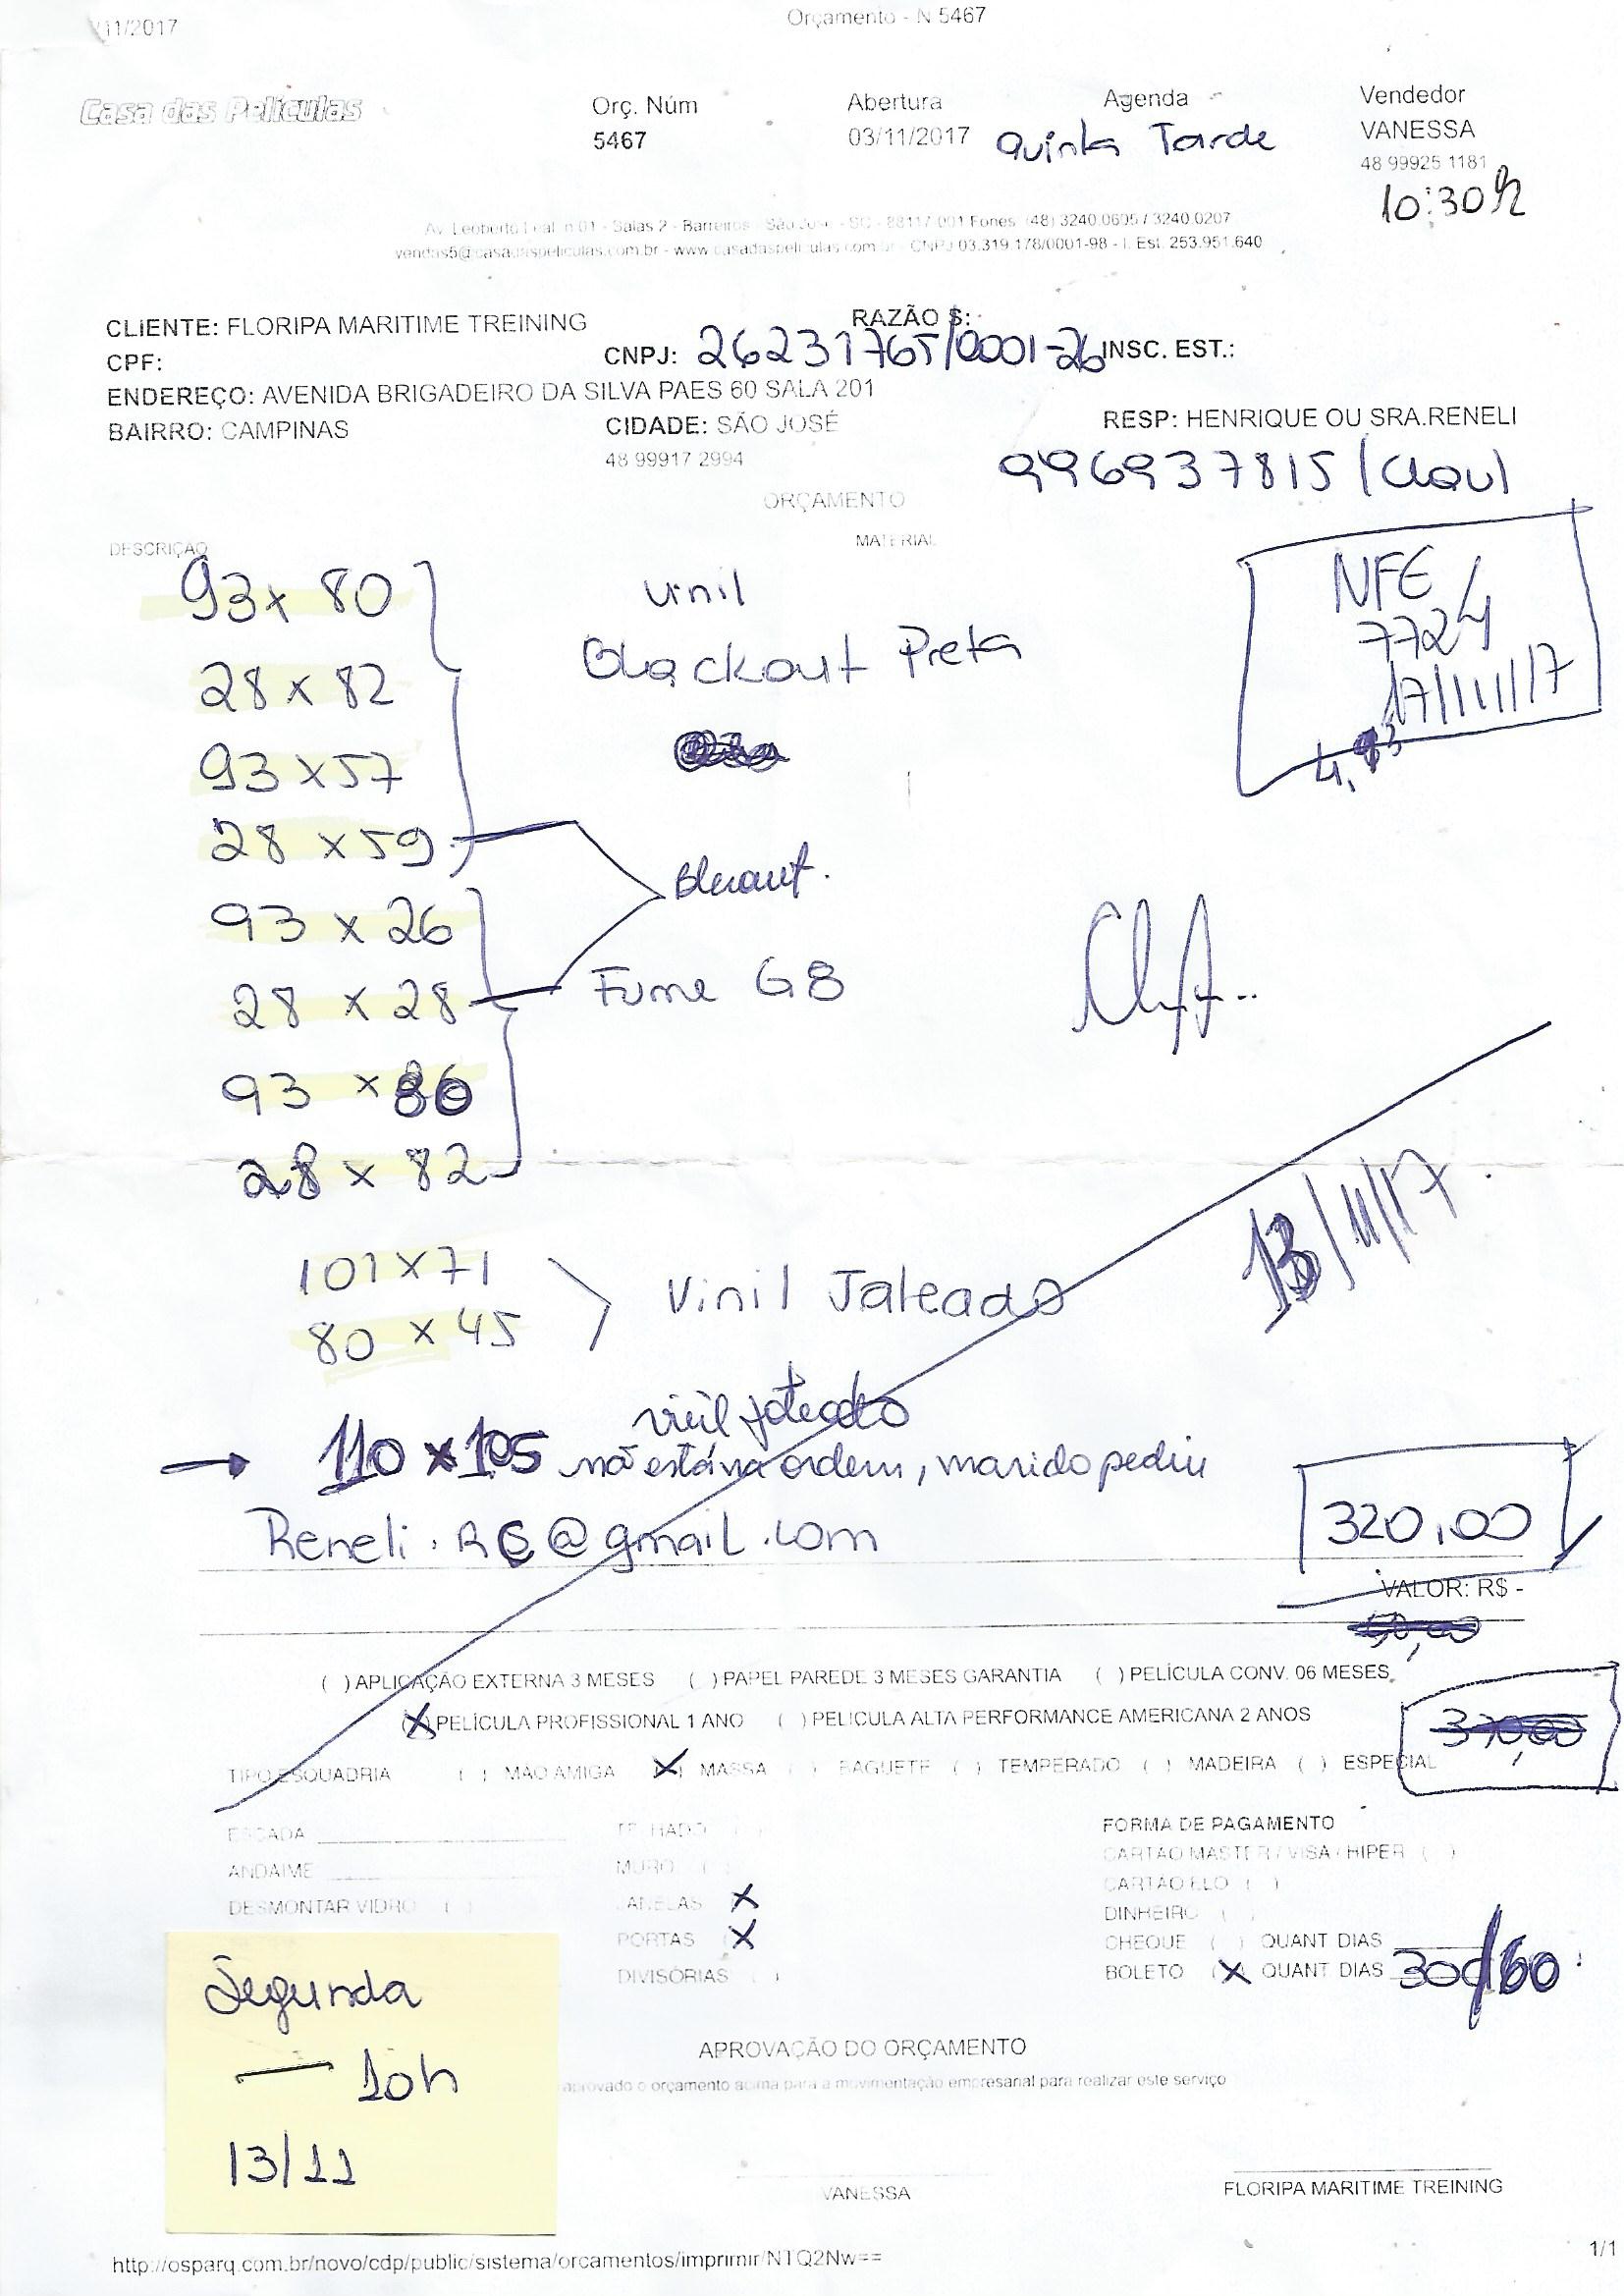 11/2017
Orçamento - N 5467
Casa das Películas
Orç. Núm
5467
Abertura
03/11/2017
Agenda
Quinta Tarde
Vendedor
VANESSA
48 99925 1181
10:30h
Av. Leoberto Leal n 01 - Salas 2 - Barreiros - São José - SC - 88117 001 Fones (48) 3240.0605 / 3240.0207
vendas5@casadaspeliculas.com.br - www.casadaspeliculas.com.br - CNPJ 03.319.178/0001-98 - I. Est. 253.951.640
CLIENTE: FLORIPA MARITIME TREINING
RAZÃO S:
CPF:
CNPJ: 26231765/0001-26 INSC. EST.:
ENDEREÇO: AVENIDA BRIGADEIRO DA SILVA PAES 60 SALA 201
BAIRRO: CAMPINAS
CIDADE: SÃO JOSÉ
RESP: HENRIQUE OU SRA.RENELI
48 99917 2994
996937815
ORÇAMENTO
DESCRIÇÃO
MATERIAL
93 x 80
Vinil
NFE
7724
28 x 82
Blackout Preta
17/11/17
93 x 57
28 x 59
93 x 26
28 x 28
Fume G8
93 x 80
28 x 82
13/11/17
101 x 71
Vinil Jateado
80 x 45
vinil jateado
110 x 105 não está na ordem, marido pediu
320,00
VALOR: R$ -
( ) APLICAÇÃO EXTERNA 3 MESES ( ) PAPEL PAREDE 3 MESES GARANTIA ( ) PELÍCULA CONV. 06 MESES
(X) PELÍCULA PROFISSIONAL 1 ANO ( ) PELICULA ALTA PERFORMANCE AMERICANA 2 ANOS
370,00
TIPO ESQUADRIA ( ) MÃO AMIGA (X) MASSA ( ) BAGUETE ( ) TEMPERADO ( ) MADEIRA ( ) ESPECIAL
ESCADA
TELHADO ( )
FORMA DE PAGAMENTO
ANDAIME
MURO ( )
CARTÃO MASTER / VISA / HIPER ( )
DESMONTAR VIDRO ( )
JANELAS X
CARTÃO ELO ( )
PORTAS X
DINHEIRO ( )
DIVISÓRIAS ( )
CHEQUE ( ) QUANT DIAS
BOLETO (X) QUANT DIAS
Segunda
10h
13/11
APROVAÇÃO DO ORÇAMENTO
aprovado o orçamento acima para a movimentação empresarial para realizar este serviço
VANESSA
FLORIPA MARITIME TREINING
http://osparq.com.br/novo/cdp/public/sistema/orcamentos/imprimir/NTQ2Nw==
1/1